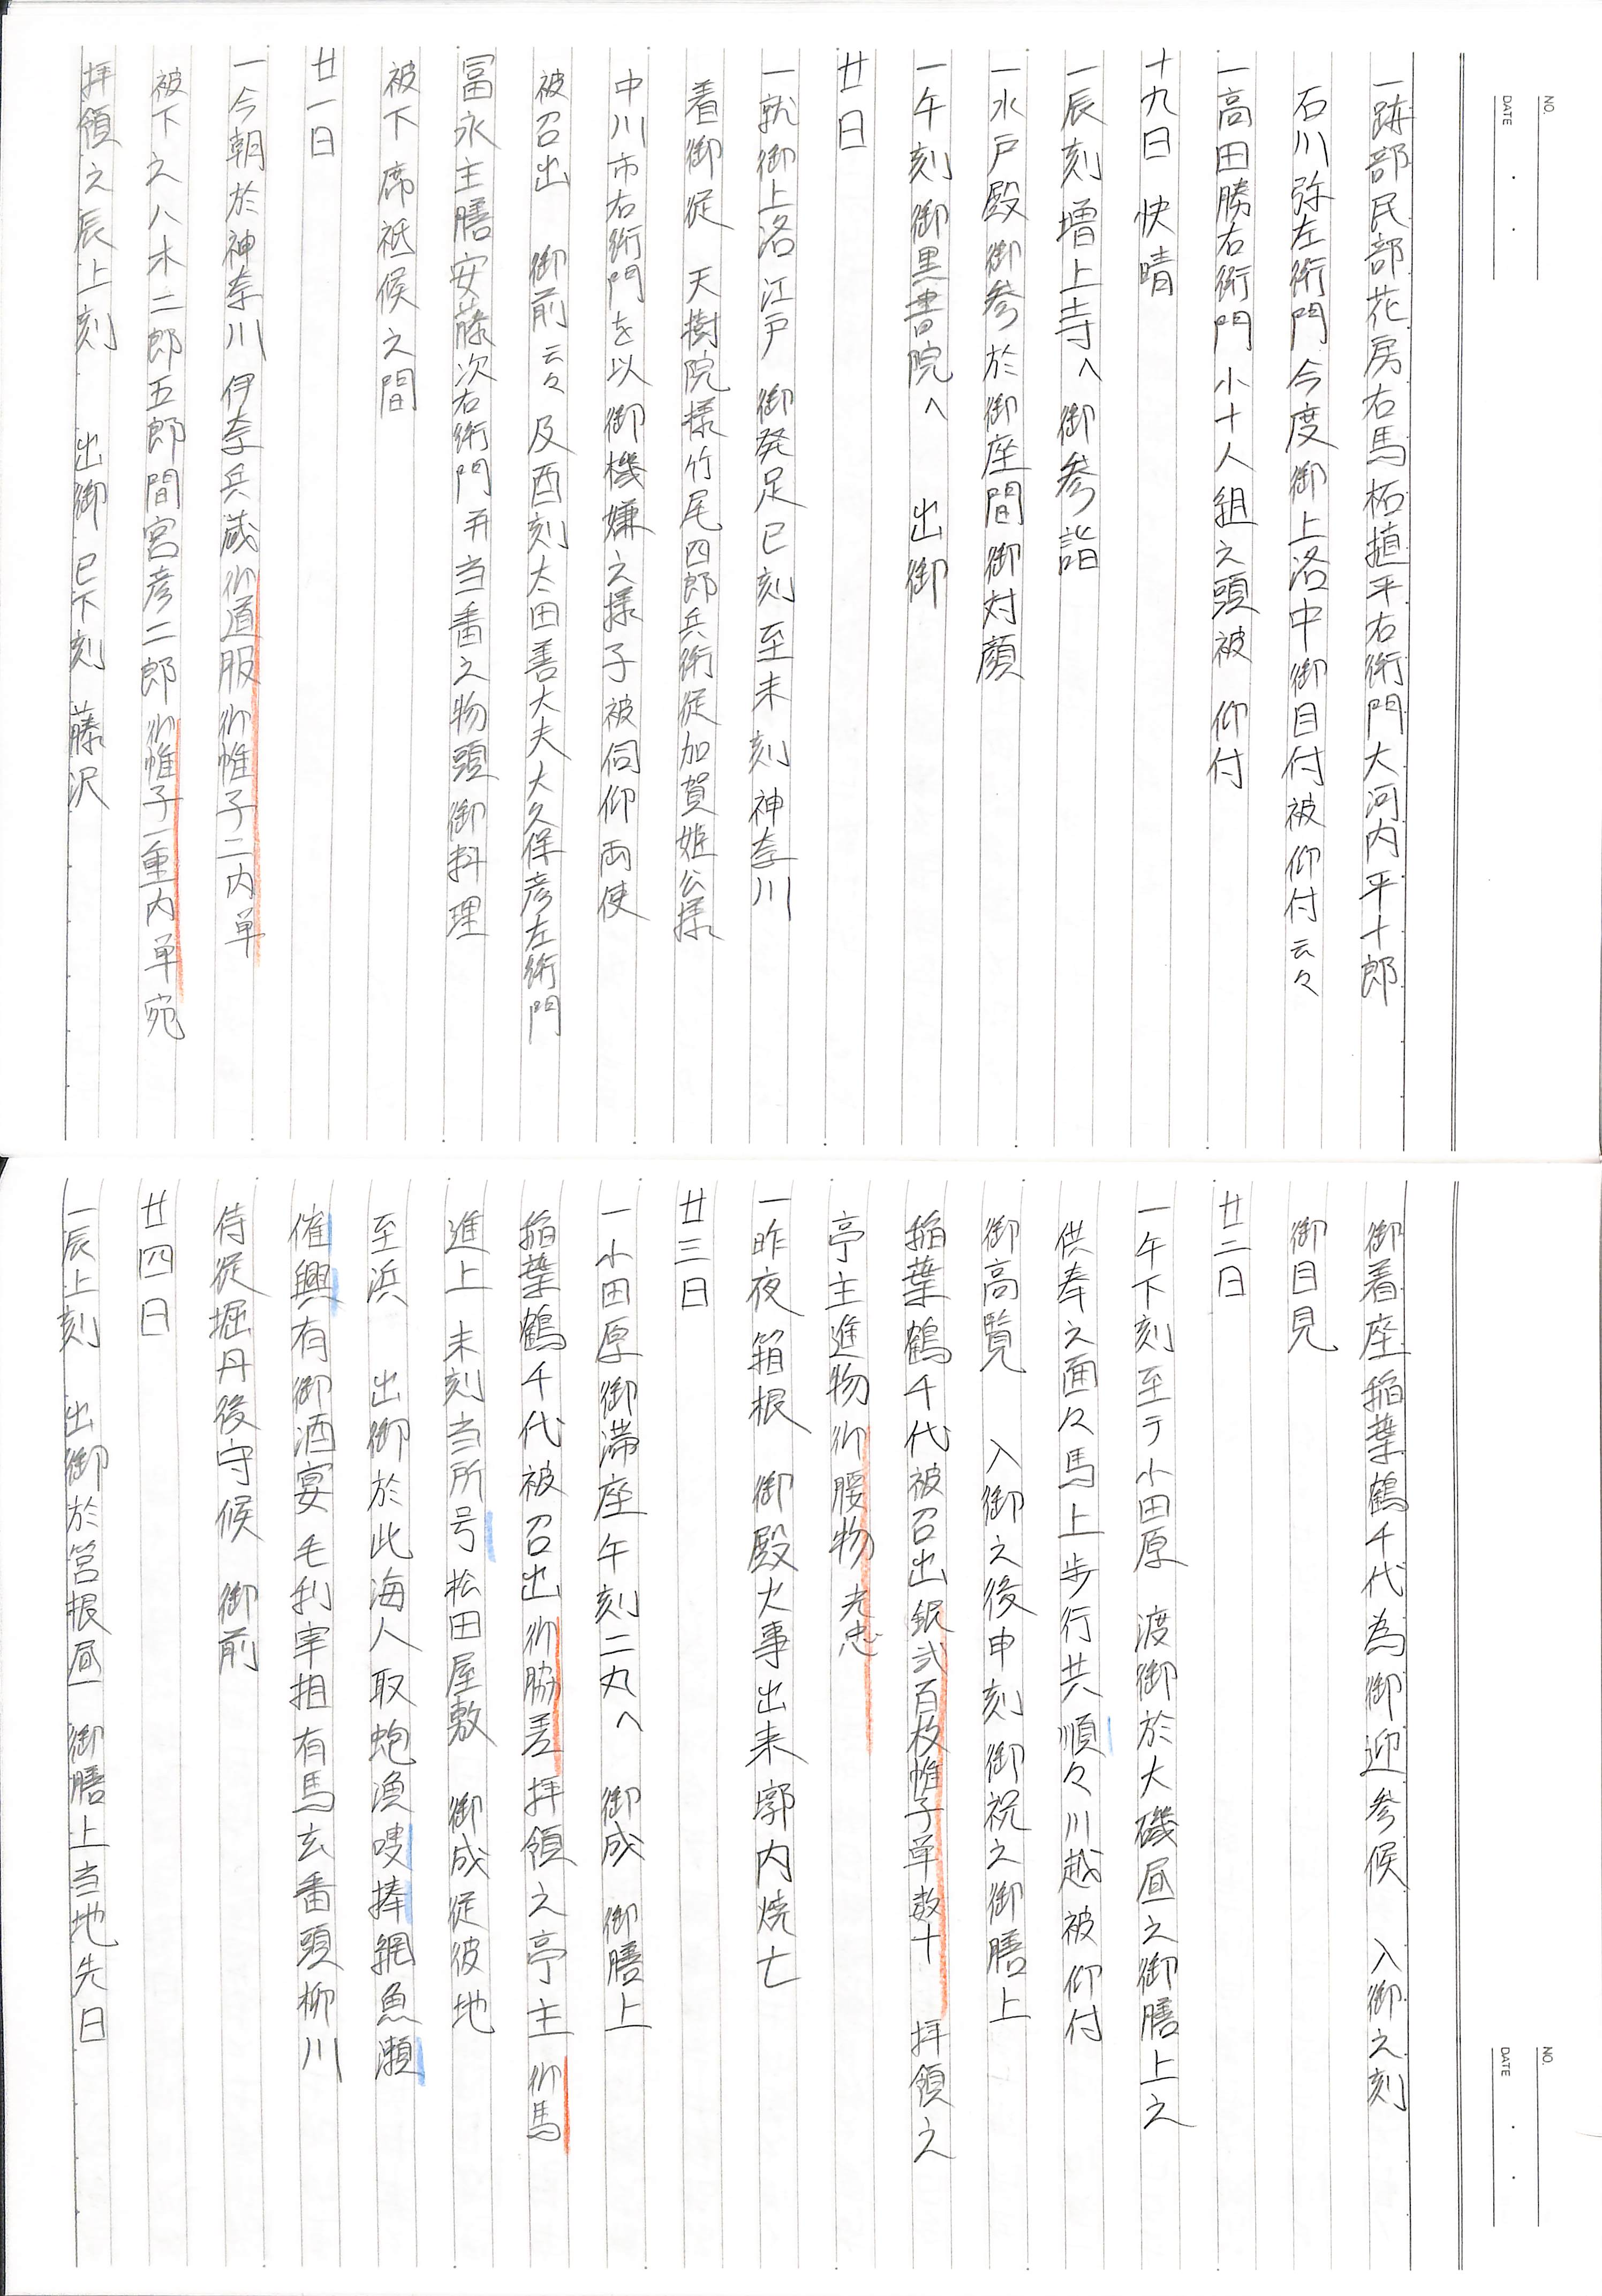 NO.
DATE
一跡部民部花房右馬柘植平右衛門大河内平十郎
石川弥左衛門今度御上洛中御目付被仰付云々
一高田勝右衛門小十人組之頭被 仰付
十九日 快晴
一辰刻増上寺へ御参詣
一水戸殿御参於御座間御対顔
一午刻御黒書院へ 出御
廿日
一就御上洛江戸 御発足巳刻至未刻神奈川
着御従 天樹院様竹尾四郎兵衛従加賀姫公様
中川市右衛門を以御機嫌之様子被伺仰両使
被召出 御前云々及酉刻太田善大夫大久保彦左衛門
冨永主膳安藤次右衛門并当番之物頭御料理
被下席祗候之間
廿一日
一今朝於神奈川伊奈兵蔵御道服御帷子二内単
被下之八木二郎五郎間宮彦二郎御帷子一重内単宛
拝領之辰上刻 出御巳下刻藤沢
御着座稲葉鶴千代為御迎参候 入御之刻
御目見
廿二日
一午下刻至テ小田原 渡御於大磯昼之御膳上之
供奉之面々馬上歩行共順々川越被仰付
御高覧 入御之後申刻御祝之御膳上
稲葉鶴千代被召出銀弐百枚帷子単数十 拝領之
亭主進物御腰物光忠
一昨夜箱根 御殿火事出来郭内焼亡
廿三日
一小田原御滞座午刻二丸へ 御成 御膳上
稲葉鶴千代被召出御脇差拝領之亭主御馬
進上未刻当所号松田屋敷 御成従彼地
至浜 出御於此海人取鮑漁叟捧網魚瀬
催興有御酒宴毛利宰相有馬玄番頭柳川
侍従堀丹後守候 御前
廿四日
一辰上刻 出御於筥根昼 御膳上当地先日
NO.
DATE